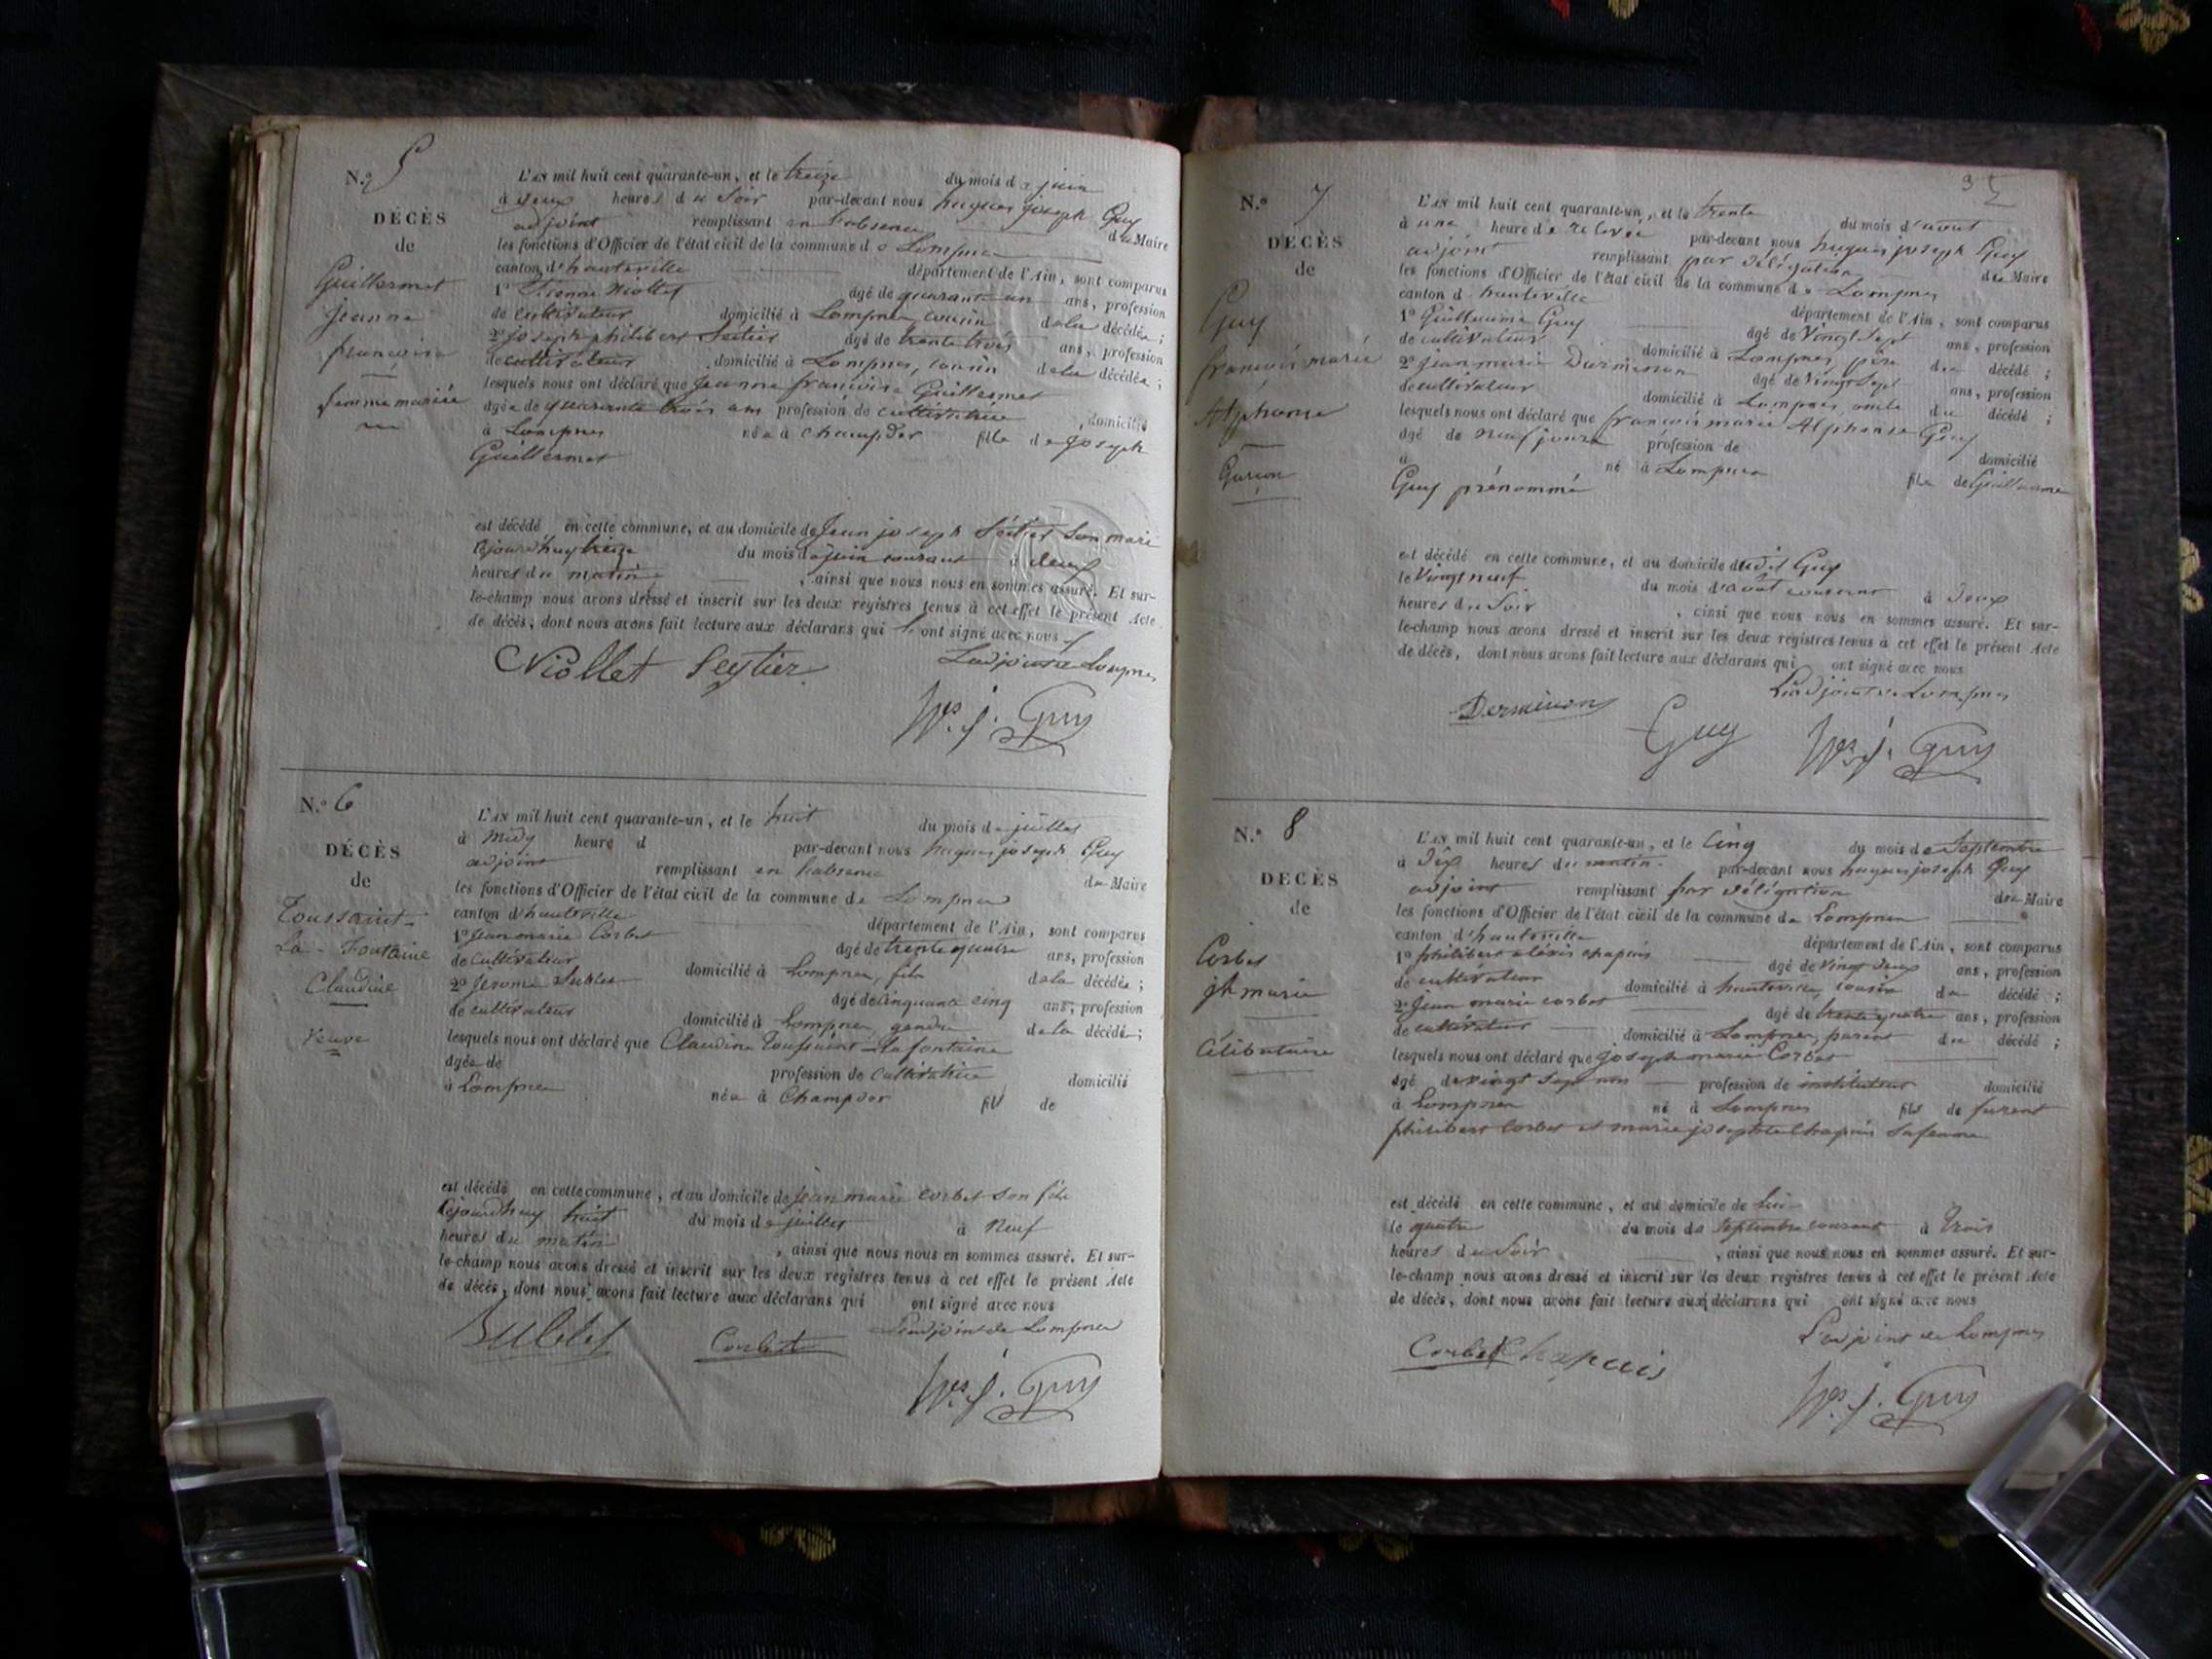 N.º 5
DÉCÈS
de
Guillermet
Jeanne
françoise
femme mariée
L'AN mil huit cent quarante-un, et le treize du mois de juin
à deux heures du Soir par-devant nous hugues joseph Guy
adjoint remplissant en l'absence du Maire
les fonctions d'Officier de l'état civil de la commune de Lompnes
canton d'hauteville département de l'Ain, sont comparus
1º Etienne Niollet âgé de quarante un ans, profession
de cultivateur domicilié à Lompnes, cousin de la décédée;
2º Joseph philibert Seitier âgé de trente trois ans, profession
de cultivateur domicilié à Lompnes, cousin de la décédée;
lesquels nous ont déclaré que Jeanne françoise Guillermet
âgée de quarante trois ans profession de cultivatrice domicilié
à Lompnes née à Champdor fille de Joseph
Guillermet
est décédé en cette commune, et au domicile de Jean joseph Seitier son mari
cejourd'huy treize du mois de juin courant à deux
heures du matin, ainsi que nous nous en sommes assuré. Et sur-
le-champ nous avons dressé et inscrit sur les deux registres tenus à cet effet le présent Acte
de décès, dont nous avons fait lecture aux déclarans qui ont signé avec nous
L'adjoint de Lompnes
Niollet Seytier
Hgs. j. Guy
N.º 6
DÉCÈS
de
Toussaint-
La-Fontaine
Claudine
Veuve
L'AN mil huit cent quarante-un, et le huit du mois de juillet
à midy heure d par-devant nous hugues joseph Guy
adjoint remplissant en l'absence du Maire
les fonctions d'Officier de l'état civil de la commune de Lompnes
canton d'hauteville département de l'Ain, sont comparus
1º Jean marie Corbet âgé de trente quatre ans, profession
de cultivateur domicilié à Lompnes, fils de la décédée;
2º Jérome Sublet âgé de cinquante cinq ans, profession
de cultivateur domicilié à Lompnes, gendre de la décédée;
lesquels nous ont déclaré que Claudine Toussaint-Lafontaine
âgée de profession de cultivatrice domicilié
à Lompnes née à Champdor fill de
est décédé en cette commune, et au domicile de Jean marie Corbet son fils
cejourdhuy huit du mois de juillet à neuf
heures du matin, ainsi que nous nous en sommes assuré. Et sur-
le-champ nous avons dressé et inscrit sur les deux registres tenus à cet effet le présent Acte
de décès, dont nous avons fait lecture aux déclarans qui ont signé avec nous
L'adjoint de Lompnes
Sublet Corbet
Hgs. j. Guy
35
N.º 7
DÉCÈS
de
Guy
françois marie
Alphonse
Garçon
L'AN mil huit cent quarante-un, et le trente du mois d'aout
à une heure de relevée par-devant nous hugues joseph Guy
adjoint remplissant par délégation du Maire
les fonctions d'Officier de l'état civil de la commune de Lompnes
canton d'hauteville département de l'Ain, sont comparus
1º Guillaume Guy âgé de vingt sept ans, profession
de cultivateur domicilié à Lompnes, père du décédé;
2º jean marie Derminon âgé de vingt sept ans, profession
de cultivateur domicilié à Lompnes, oncle du décédé;
lesquels nous ont déclaré que françois marie Alphonse Guy
âgé de neuf jours profession de domicilié
à né à Lompnes fils de Guillaume
Guy prénommé
est décédé en cette commune, et au domicile dudit Guy
le vingt neuf du mois d'août courant à deux
heures du Soir, ainsi que nous nous en sommes assuré. Et sur-
le-champ nous avons dressé et inscrit sur les deux registres tenus à cet effet le présent Acte
de décès, dont nous avons fait lecture aux déclarans qui ont signé avec nous
L'adjoint de Lompnes
Derminon Guy Hgs. j. Guy
N.º 8
DÉCÈS
de
Corbet
jh marie
Célibataire
L'AN mil huit cent quarante-un, et le Cinq du mois de Septembre
à dix heures du matin par-devant nous hugues joseph Guy
adjoint remplissant par délégation du Maire
les fonctions d'Officier de l'état civil de la commune de Lompnes
canton d'hauteville département de l'Ain, sont comparus
1º philibert aléxis chapuis âgé de vingt deux ans, profession
de cultivateur domicilié à hauteville, cousin du décédé;
2º Jean marie corbet âgé de trente quatre ans, profession
de cultivateur domicilié à Lompnes, parent du décédé;
lesquels nous ont déclaré que joseph marie Corbet
âgé de vingt sept ans profession de instituteur domicilié
à Lompnes né à Lompnes fils de furent
philibert Corbet et marie josephte Chapuis sa femme
est décédé en cette commune, et au domicile de lui
le quatre du mois de Septembre courant à trois
heures du Soir, ainsi que nous nous en sommes assuré. Et sur-
le-champ nous avons dressé et inscrit sur les deux registres tenus à cet effet le présent Acte
de décès, dont nous avons fait lecture aux déclarans qui ont signé avec nous
L'adjoint de Lompnes
Corbet Chapuis
Hgs. j. Guy